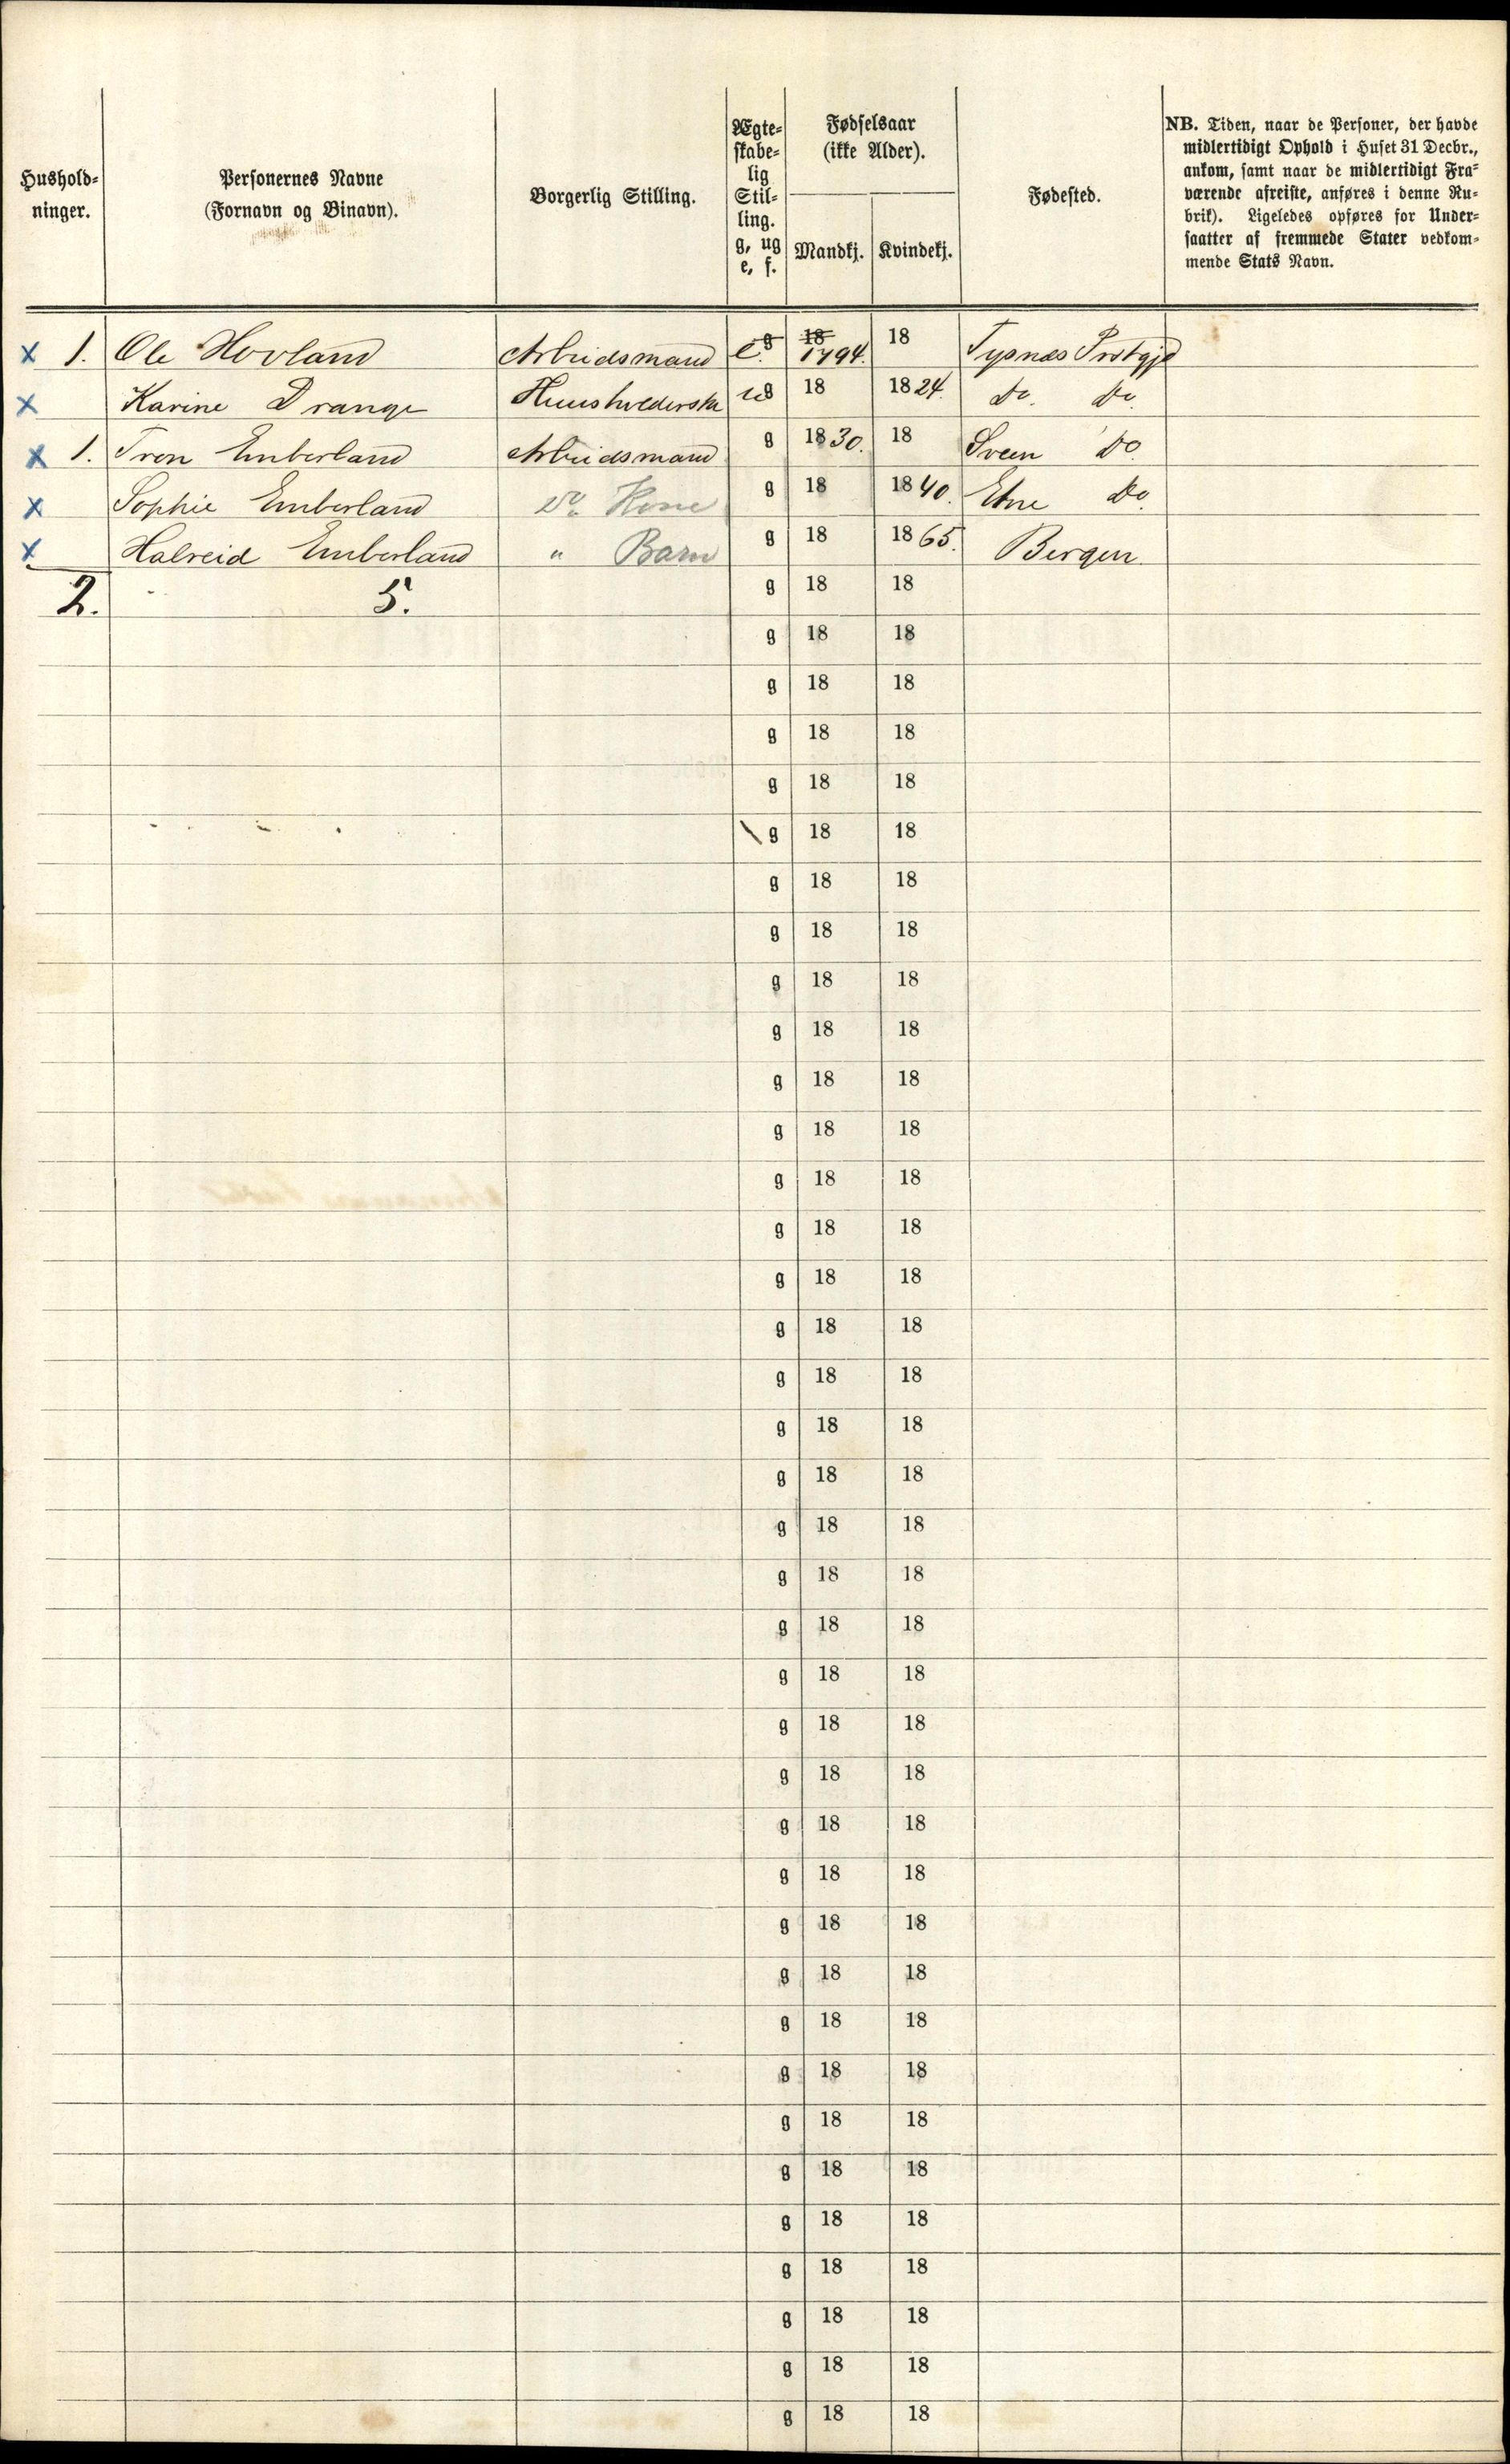 Hushold-
ninger.
Personernes Navne
(Fornavn og Binavn).
Borgerlig Stilling.
Ægte-
skabe-
lig
Stil-
ling.
g, ug
e, f.
Fødselsaar
(ikke Alder).
Mandkj.
Kvindekj.
Fødested.
NB. Tiden, naar de Personer, der havde
midlertidigt Ophold i Huset 31 Decbr.,
ankom, samt naar de midlertidigt Fra-
værende afreiste, anføres i denne Ru-
brik). Ligeledes opføres for Under-
saatter af fremmede Stater vedkom-
mende Stats Navn.
x 1. Ole Hovland Arbeidsmand e. g 18 1794. 18 Tysnæs Prstgjd
x Karine Drange Huusholderske ug 18 1824. Do. Do.
x 1. Arbeidsmand g 1830. 18 Sveen Do.
x Sophie Emberland Do. Kone g 18 1840. Etne Do.
x Halreid Emberland " Barn g 18 1865. Bergen.
2. 5. g 18 18
g 18 18
g 18 18
g 18 18
g 18 18
g 18 18
g 18 18
g 18 18
g 18 18
g 18 18
g 18 18
g 18 18
g 18 18
g 18 18
g 18 18
g 18 18
g 18 18
g 18 18
g 18 18
g 18 18
g 18 18
g 18 18
g 18 18
g 18 18
g 18 18
g 18 18
g 18 18
g 18 18
g 18 18
g 18 18
g 18 18
g 18 18
g 18 18
g 18 18
g 18 18
g 18 18
g 18 18
g 18 18